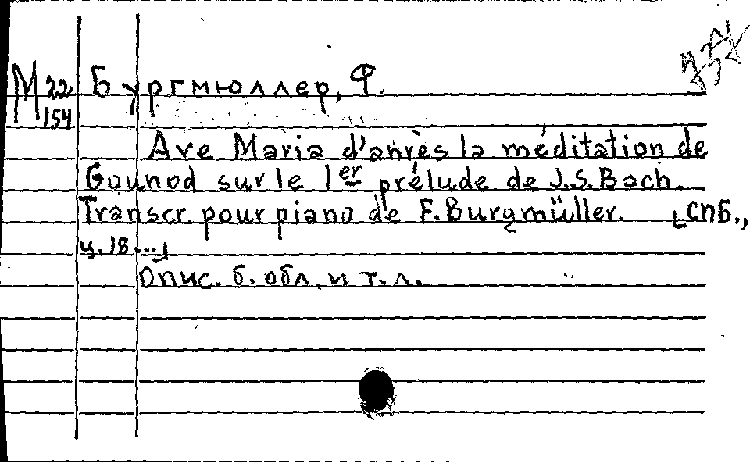 М 22 Бургмюллер, Ф.
154
Ave Maria d'après la méditation de
Gounod sur le 1er prélude de J.S. Bach.
Transcr. pour piano de F. Burgmüller. [СПБ.,
ц. 18...]
Опис. б. обл. и т. л.